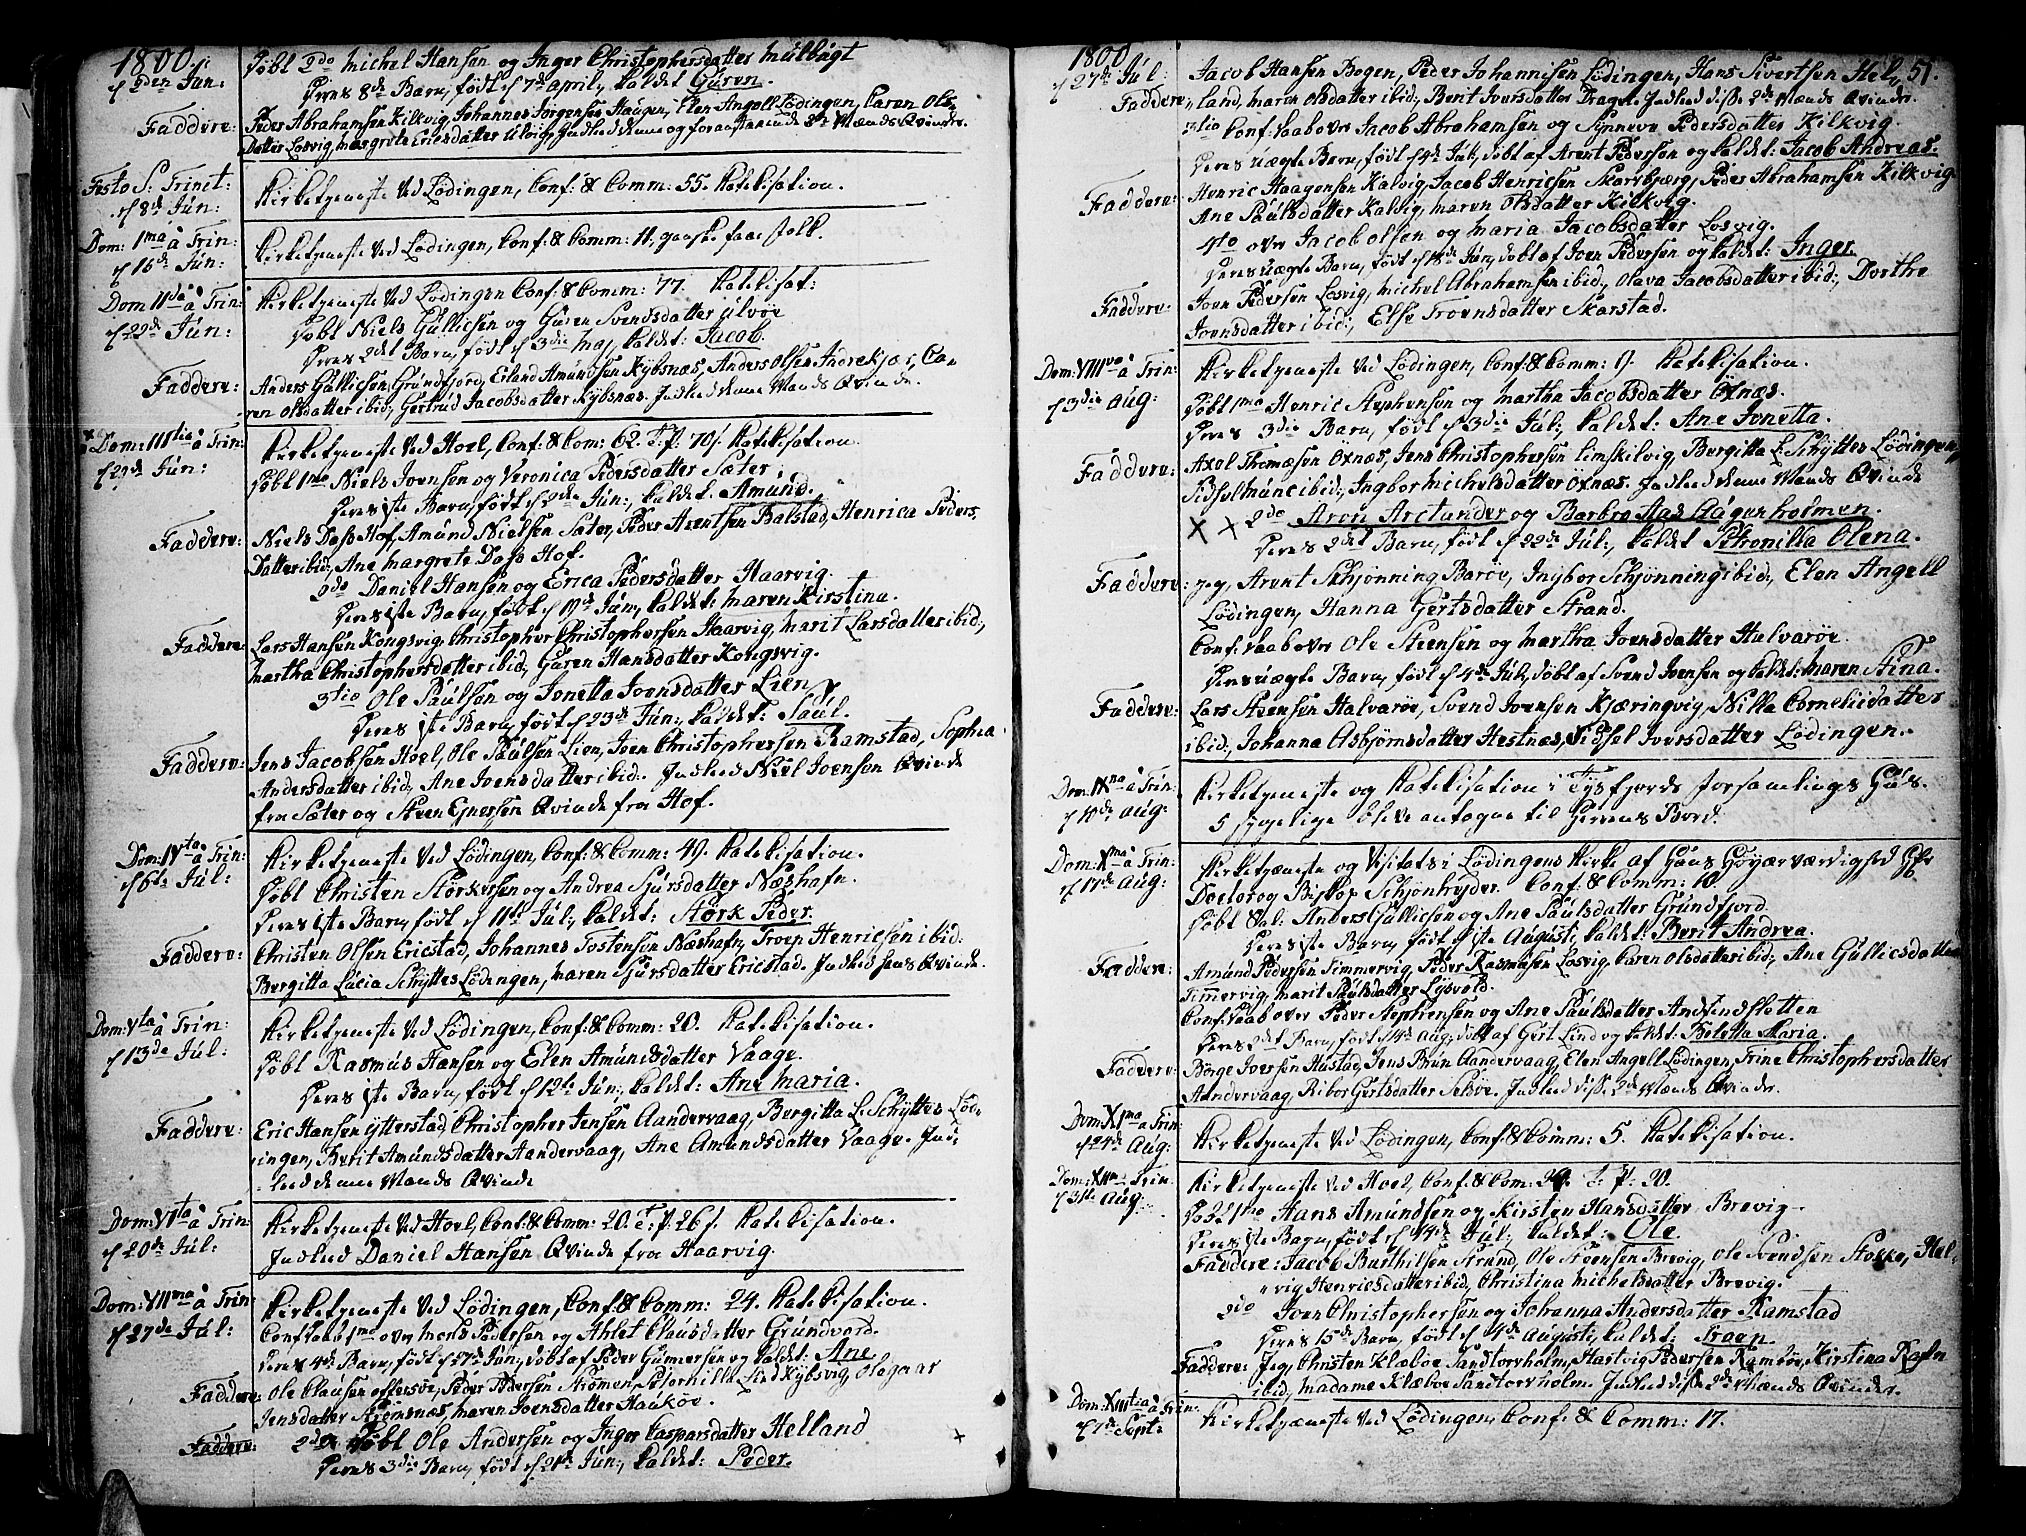 1800.
d 2den Jun:
Døbt 2do Michel Hansen og Inger Christophersdatter Mulbøgt
Deres 8de Barn, født d 7de April, kaldet Guren.
Faddere: Peder Abrahamsen Kilkvig, Johannes Jørgensen Haugen, Elen Angell Lödingen, Caren Ols-
Datter Losvig, Margrete Ericsdatter Ulvig. Indled denne og foranstaaende 2de Mænds Qvinder.
Festo S: Trinit:
d 8de Jun:
Kirketjeneste ved Lödingen, Conf: & Comm: 55. Katekisation.
Dom: 1ma à Trin:
d 15de Jun:
Kirketjeneste ved Lödingen, Conf: & Comm: 11. ganske faae Folk.
Dom 11da à Trin:
d 22de Jun:
Kirketjeneste ved Lödingen Conf: & Comm: 77. Katekisat:
Døbt Niels Gullicsen og Guren Svendsdatter Ulvøe
Deres 2det Barn, født d 3die Maj, kaldet: Jacob.
Faddere: Anders Gullicsen Grundfjord, Erland Amundsen Kybsnæs, Anders Olsen Indrekjør, Ca-
ren Olsdatter ibid:, Gertrud Jacobsdatter Kybsnæs. Indled denne Mands Qvinde.
Dom: 111tia à Trin:
d 29de Jun:
Kirketjeneste ved Hoel, Conf: & Com: 62. T. f: 70 f. Katekisation.
Døbt 1mo Niels Joensen og Veronica Pedersdatter Sæter.
Deres 1ste Barn, født d 2de Jun:, kaldet. Amund.
Faddere: Niels Dass Hof, Amund Nielsen Sæter, Peder Arentsen Balstad, Henrica Peders,
Datter ibid:, Ane Margrete Dass Hof.
2do Daniel Hansen og Erica Pedersdatter Haarvig.
Deres 1ste Barn, født d 19de Jun:, kaldet: Maren Kirstina.
Faddere: Lars Hansen Kongsvig, Christopher Christophersen Haarvig, Marit Larsdatter ibid:,
Martha Christophersdatter ibid, Guren Hansdatter Kongsvig.
3tio Ole Paulsen og Jonetta Joensdatter Lien,
Deres 1ste Barn, født d 23de Jun:, kaldet: Paul.
Faddere: Jens Jacobsen Hoel, Ole Paulsen Lien, Joen Christophersen Ramstad, Sophia
Andersdatter ibid:, Ane Joensdatter ibid:. Indled Niel Joensen Qvinde
fra Sæter og Steen Ejnersen Qvinde fra Hof.
Dom: IVta à Trin:
d 6te Jul:
Kirketjeneste ved Lödingen, Conf: & Comm: 49. Katekisation.
Døbt Christen Størkersen og Andrea Sjursdatter Næshafn.
Deres 1ste Barn, født d 11te Jul:, kaldet: Størk Peder.
Faddere: Christen Olsen Ericstad, Johannes Tostensen Næshafn, Troen Henricsen ibid:
Bergitta Lucia Schÿttes Lödingen, Maren Sjursdatter Ericstad. Indled hans Qvinde.
Dom: Vta à Trin:
d 13de Jul:
Kirketjeneste ved Lödingen, Conf: & Comm: 20. Katekisation.
Døbt Rasmus Hansen og Elen Amundsdatter Vaage.
Deres 1ste Barn, født d 12te Jun:, kaldet: Ane Maria.
Faddere: Eric Hansen Ytterstad, Christopher Jensen Aandervaag, Bergitta L. Schÿttes Löd-
ingen, Berit Amundsdatter Aandervaag, Ane Amundsdatter Vaage. Ind-
led denne Mands Qvinde
Dom: VIta à Trin:
d 20de Jul:
Kirketjeneste ved Hoel, Conf: & Comm: 20. T: f. 26 f. Katekisation.
Indled Daniel Hansen Qvinde fra Haarvig.
Dom: VIIma à Trin:
d 27de Jul:
Kirketjeneste ved Lödingen, Conf: & Comm: 24. Katekisation.
Conf: Daab 1mo over Mons Pedersen og Ahlet Clausdatter Grundvord.
Deres 4de Barn, født d 17de Jun:, døbt af Peder Gunnersen og kaldet: Ane
Faddere: Ole Clausen Offersøe, Peder Pedersen Strømen, Petornilla Lind Kybsvig, Olegaar
Jensdatter Strømsnæs, Maren Joensdatter Haukøe.
Faddere: 2do Døbt Ole Andersen og Inger Caspersdatter Helland
Deres 3die Barn, født d 21de Jun:, kaldet: Peder.
1800
d 27de Jul:
51.
Faddere, Jacob Hansen Bogen, Peder Johannisen Lödingen, Hans Sivertsen Hel-
land, Maren Olsdatter ibid:, Berit Iversdatter Dragvik. Indled disse 2de Mænds Qvinder.
3tio Conf: Daab over Jacob Abrahamsen og Synneve Pedersdatter Kilkvig
Deres uægte Barn, født d 4de Jul:, døbt af Arent Pedersen og kaldet: Jacob Andreas.
Faddere: Henric Haagensen Kalvig, Jacob Henricsen Skarsbjerg, Peder Abrahamsen Kilkvig
Ane Paulsdatter Kalvig, Maren Olsdatter Kilkvig.
4to over Jacob Olsen og Maria Jacobsdatter Losvig.
Deres uægte Barn, født d 18de Jun:, døbt af Joen Pedersen og kaldet: Inger.
Faddere: Joen Pedersen Losvig, Michel Abrahamsen ibid:, Olava Jacobsdatter ibid:, Dorthe
Joensdatter ibid:, Else Troensdatter Skarstad.
Dom: VIIIva à Trin:
d 3die Aug:
Kirketjeneste ved Lödingen, Conf: & Comm: 9. Katekisation.
Døbt 1mo Henric Stephensen og Martha Jacobsdatter Öxnæs.
Deres 3die Barn, født d 3die Jul:, kaldet: Ane Jonetta.
Faddere: Axel Thomæsen Öxnæs, Jens Christophersen Limskilvig, Bergitta L. Schÿttes Lödingen,
Sidsel Munc ibid:, Ingbor Michelsdatter Öxnæs. Indled denne Mands Qvinde
2do Aron Arctander og Barbro Aas Aagenholmen.
Deres 2det Barn, født d 22de Jul:, kaldet Petronilla Olena.
Faddere: jeg, Arent Schjønning Barøe, Ingbor Schjønning ibid:, Elen Angell
Lödingen, Hanna Gertsdatter Strand.
Conf: Daab over Ole Steensen og Martha Joensdatter Halvarøe.
Deres uægte Barn, født d 4de Jul:, døbt af Svend Joensen og kaldet: Maren Stina.
Faddere: Lars Steensen Halvarøe, Svend Joensen Kjæringvig, Nilla Corneliidatter
ibid:, Johanna Asbjørnsdatter Hestnæs, Sidsel Iversdatter Lödingen.
Dom: IXna à Trin:
d 10de Aug:
Kirketjeneste og Katekisation i Tysfjords Forsamlings Huus.
5 sygelige bleve antagne til Herrens Bord.
Dom: Xma à Trin:
d 17de Aug:
Kirketjeneste og Visitats i Lödingens Kirke af Hans Høyærværdighed Hr
Doctor og Biskop Schjønheyder. Conf: & Comm: 10.
Døbt Sal: Anders Gullicsen og Ane Paulsdatter Grundfjord.
Deres 1ste Barn, født d 1ste Augusti, kaldet: Berit Andrea.
Faddere: Amund Pedersen Timmervig, Peder Rasmusen Losvig, Caren Olsdatter ibid:, Ane Gullicsdatter
Timmervig, Marit Paulsdatter Lysvold.
Conf: Daab over Peder Stephensen og Ane Paulsdatter Andsendsletten
Deres 2det Barn, født d 14de Aug:, døbt af Gert Lind og kaldet: Beletta Maria.
Faddere: Børge Iversen Hustad, Jens Brun Aandervaag, Elen Angell Lödingen, Trine Christophersdatter
Aandervaag, Ribor Gertsdatter Seløe. Indled disse 2de Mænds Qvinder.
Dom: XIma à Trin:
d 24de Aug:
Kirketjeneste ved Lödingen, Conf: & Comm: 5. Katekisation.
Dom: XIIma à Trin:
d 31te Aug:
Kirketjeneste ved Hoel, Conf: & Com: 29. T. f: 20.
Døbt 1mo Hans Amundsen og Kirsten Hansdatter Brevig.
Deres 1ste Barn, født d 14de Jul:, kaldet: Ole.
Faddere: Jacob Barthilsen Strand, Ole Steensen Brevig, Ole Svendsen Stokke, Hel-
vig Henricsdatter ibid, Christina Michelsdatter Brevig.
2do Joen Christophersen og Johanna Andersdatter Ramstad
Deres 15de Barn, født d 4de Augusti, kaldet: Troen.
Faddere: Jeg, Christen Klæboe Sandtorvholm, Hartvig Pedersen Rambøe, Kirstina Rafn
ibid:, Madame Klæboe Sandtorvholm. Indled disse 2de Mænds Qvinder.
Dom: XIIItia à Trin:
d 7de Sept:
Kirketjæneste ved Lödingen, Conf: & Comm: 17.